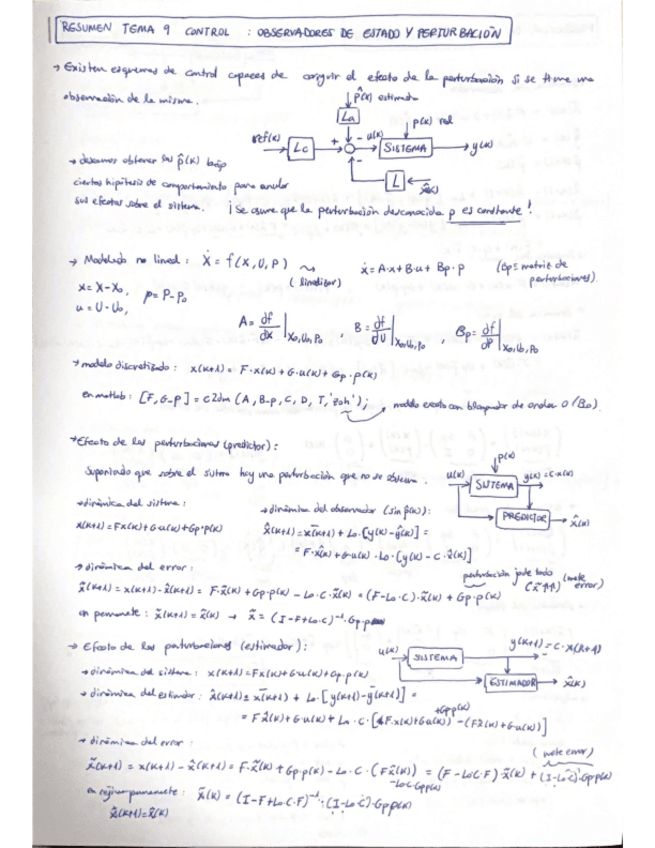 RESUMEN TEMA 9 CONTROL : OBSERVADORES DE ESTADO Y PERTURBACIÓN
→ Existen esquemas de control capaces de corregir el efecto de la perturbación si se tiene una
observación de la misma.
p̂(k) estimada
La
p(k) real
ref(k)
Lc
+
-
u(k)
SISTEMA
y(k)
-
L
x̂(k)
→ deseamos obtener p̂(k) bajo
ciertas hipótesis de comportamiento para anular
sus efectos sobre el sistema.
¡Se asume que la perturbación desconocida p es constante!
→ Modelado no lineal : Ẋ = f(X,U,P) ⇝ ẋ = A·x + B·u + Bp·p (Bp = matriz de
(linealizar) perturbaciones)
x = X-X₀, p = P-P₀
u = U-U₀,
A = df/dx |X₀,U₀,P₀ , B = df/dU |X₀,U₀,P₀ , Bp = df/dP |X₀,U₀,P₀
→ modelo discretizado : x(k+1) = F·x(k) + G·u(k) + Gp·p(k)
en matlab : [F,G-p] = c2dm (A, B-p, C, D, T, 'zoh'); modelo exacto con bloqueador de orden 0 (B₀).
→ Efecto de las perturbaciones (predictor) :
Suponiendo que sobre el sistema hay una perturbación que no se observa.
p(k)
u(k)
SISTEMA
y(k) = C·x(k)
PREDICTOR
x̂(k)
→ dinámica del sistema :
x(k+1) = Fx(k) + G·u(k) + Gp·p(k)
→ dinámica del observador (sin p̂(k)) :
x̂(k+1) = x̄(k+1) + Lo·[y(k)-ŷ(k)] =
= F·x̂(k) + G·u(k) + Lo·[y(k) - C·x̂(k)]
→ dinámica del error :
perturbación jode todo (mete
error)
x̃(k+1) = x(k+1) - x̂(k+1) = F·x̃(k) + Gp·p(k) - Lo·C·x̃(k) = (F-Lo·C)·x̃(k) + Gp·p(k)
en permanente : x̃(k+1) = x̃(k) → x̃ = (I-F+Lo·C)⁻¹·Gp·p
→ Efecto de las perturbaciones (estimador) :
u(k)
SISTEMA
y(k+1) = C·x(k+1)
ESTIMADOR
x̂(k)
→ dinámica del sistema : x(k+1) = Fx(k) + Gu(k) + Gp·p(k)
→ dinámica del estimador : x̂(k+1) = x̄(k+1) + Lo·[y(k+1) - ȳ(k+1)] =
+Gpp(k)
= Fx̂(k) + G·u(k) + Lo·C·[(F·x(k)+Gu(k)) - (Fx̂(k)+G·u(k))]
→ dinámica del error :
(mete error)
x̃(k+1) = x(k+1) - x̂(k+1) = F·x̃(k) + Gp·p(k) - Lo·C·(Fx̃(k)) = (F-LoC·F)·x̃(k) + (I-LoC)·Gpp(k)
-LoC·Gpp(k)
en régimen permanente : x̃(k) = (I-F+Lo·C·F)⁻¹·(I-Lo·C)·Gpp(k)
x̃(k+1) = x̃(k)